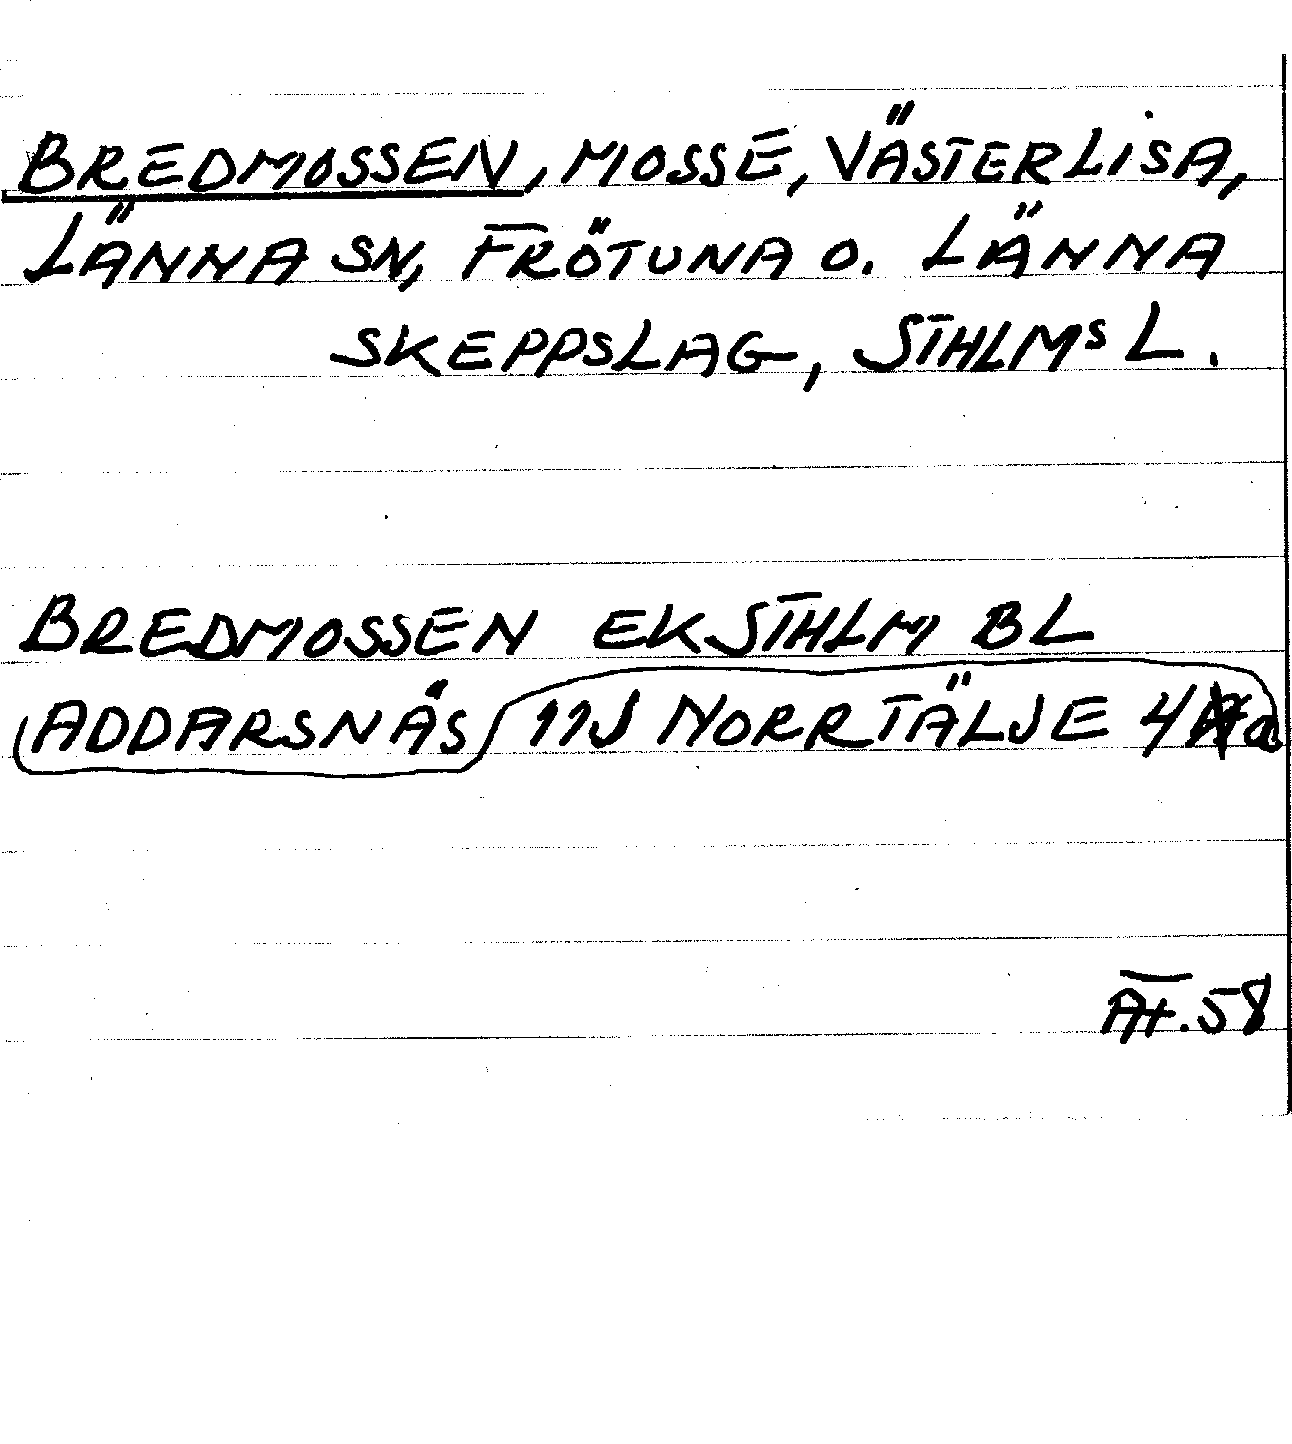 BREDMOSSEN, MOSSE, VÄSTERLISA,
LÄNNA SN, FRÖTUNA O. LÄNNA
SKEPPSLAG, STHLMS L.
BREDMOSSEN EKSTHLM BL
ADDARSNÄS 11J NORRTÄLJE 4 a
58